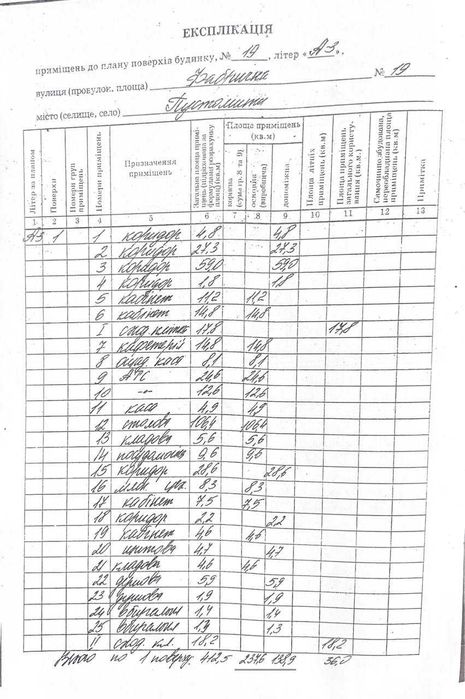 ЕКСПЛІКАЦІЯ
приміщень до плану поверхів будинку, № 19, літер «А3»
вулиця (провулок, площа) Фабрична № 19
місто (селище, село) Пустомити
Літер за планом Поверхи Номери груп приміщень Номери приміщень Призначення приміщень Площа приміщень (кв.м) основна (виробнича) допоміжна Площа літніх приміщень (кв.м) Площа приміщень загального користування (кв.м.) Самочинно збудована, переобладнана площа приміщень (кв.м) Примітка
1 2 3 4 5 6 7 8 9 10 11 12 13
А3 1 1 коридор 4,8 4,8
2 коридор 27,3 27,3
3 коридор 59,0 59,0
4 коридор 1,8 1,8
5 кабінет 11,2 11,2
6 кабінет 14,8 14,8
I сход. клітка 17,8 17,8
7 кафетерій 14,8 14,8
8 ощад. каса 8,1 8,1
9 АТС 24,6 24,6
10 -"- 12,6 12,6
11 каса 4,9 4,9
12 столова 106,4 106,4
13 кладова 5,6 5,6
14 9,6 9,6
15 коридор 28,6 28,6
16 8,3 8,3
17 кабінет 7,5 7,5
18 коридор 2,2 2,2
19 кабінет 4,6 4,6
20 щитова 4,7 4,7
21 кладова 4,6 4,6
22 душова 5,9 5,9
23 душова 1,9 1,9
24 вбиральня 1,4 1,4
25 вбиральня 1,3 1,3
II сход. кл. 18,2 18,2
Всього по 1 поверху: 412,5 237,6 138,9 36,0